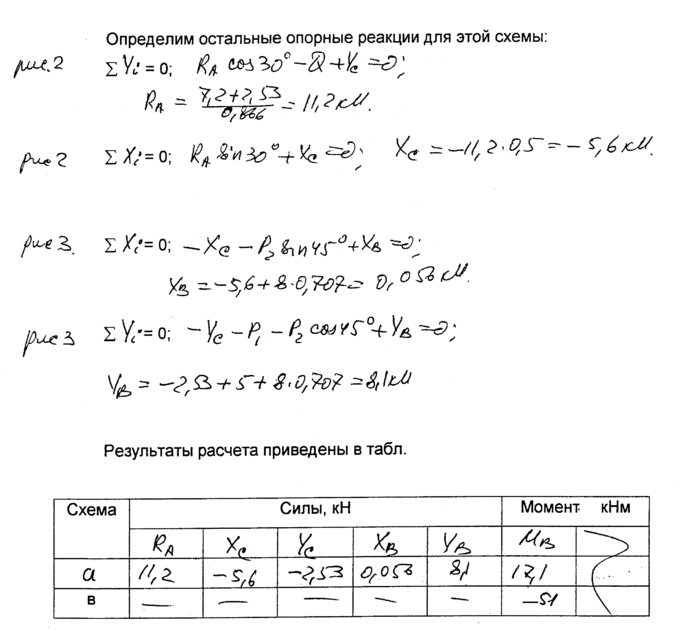 Определим остальные опорные реакции для этой схемы:
рис.2 ΣYi = 0; RA cos30° – Q + Yc = 0;
RA = 7,2+2,53 / 0,866 = 11,2 кН.
рис 2 ΣXi = 0; RA sin30° + Xc = 0; Xc = –11,2·0,5 = –5,6 кН.
рис 3. ΣXi = 0; –Xc – P2 sin45° + XB = 0;
XB = –5,6 + 8·0,707 = 0,056 кН.
рис 3 ΣYi = 0; –Yc – P1 – P2 cos45° + YB = 0;
YB = –2,53 + 5 + 8·0,707 = 8,1 кН
Результаты расчета приведены в табл.
Схема Силы, кН Момент кНм
RA Xc Yc XB YB MB
а 11,2 –5,6 –2,53 0,056 8,1 17,1
в — — — — — –51